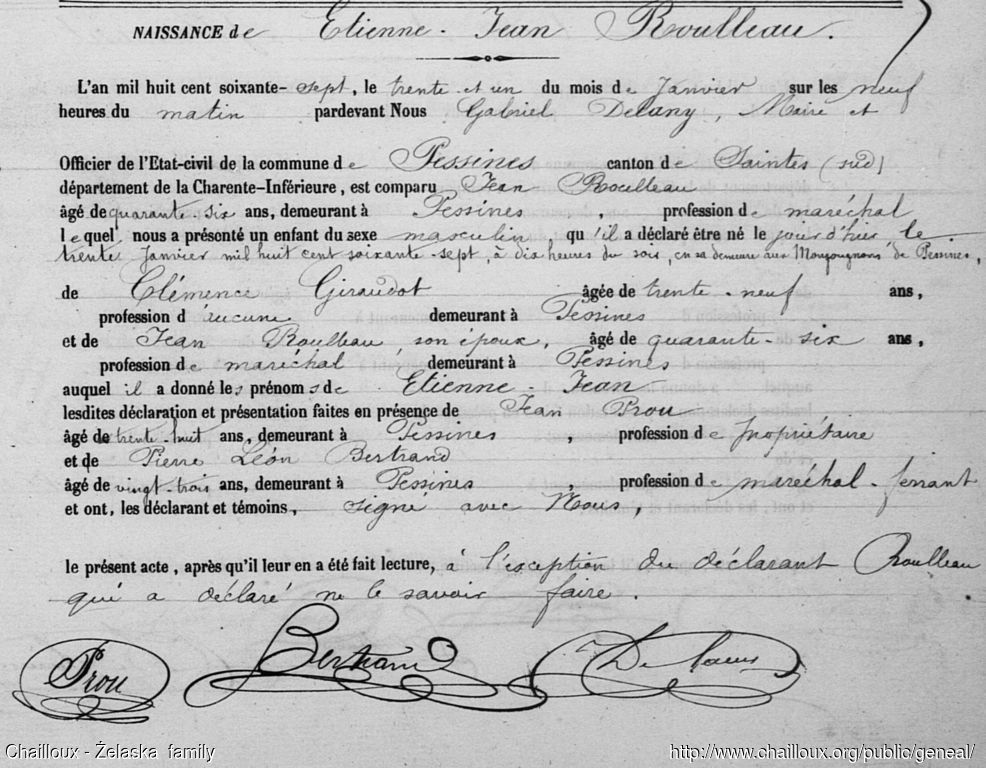 NAISSANCE de Etienne - Jean Roulleau.
L'an mil huit cent soixante-sept, le trente et un du mois de Janvier sur les neuf
heures du matin pardevant Nous Gabriel Delany, Maire et
Officier de l'Etat-civil de la commune de Pessines canton de Saintes (sud)
département de la Charente-Inférieure, est comparu Jean Roulleau
âgé de quarante-six ans, demeurant à Pessines, profession de maréchal
lequel nous a présenté un enfant du sexe masculin, qu'il a déclaré être né le jour d'hier le
trente Janvier mil huit cent soixante-sept, à dix heures du soir, en sa demeure aux de Pessines,
de Clémence Giraudot âgée de trente-neuf ans,
profession d'aucune demeurant à Pessines
et de Jean Roulleau, son époux, âgé de quarante-six ans,
profession de maréchal demeurant à Pessines
auquel il a donné les prénoms de Etienne-Jean
lesdites déclaration et présentation faites en présence de Jean Prou
âgé de trente-huit ans, demeurant à Pessines, profession de propriétaire
et de Pierre Léon Bertrand
âgé de vingt-trois ans, demeurant à Pessines, profession de maréchal-ferrant
et ont, les déclarant et témoins, signé avec Nous,
le présent acte, après qu'il leur en a été fait lecture, à l'exception du déclarant Roulleau
qui a déclaré ne le savoir faire.
Prou Bertrand
Chailloux - Żelaska family http://www.chailloux.org/public/geneal/